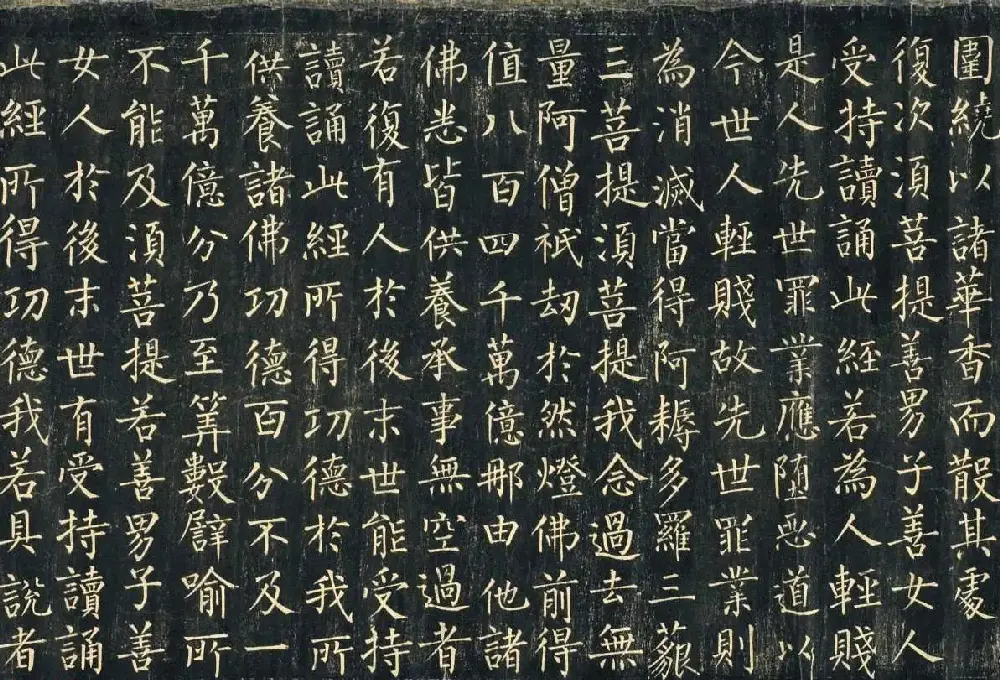 圍繞以諸華香而散其處
復次須菩提善男子善女人
受持讀誦此經若為人輕賤
是人先世罪業應堕惡道以
今世人輕賤故先世罪業則
為消滅當得阿耨多羅三藐
三菩提須菩提我念過去無
量阿僧祇劫於然燈佛前得
值八百四千萬億那由他諸
佛悉皆供養承事無空過者
若復有人於後末世能受持
讀誦此經所得功德於我所
供養諸佛功德百分不及一
千萬億分乃至筭數譬喻所
不能及須菩提若善男子善
女人於後末世有受持讀誦
此經所得功德我若具說者